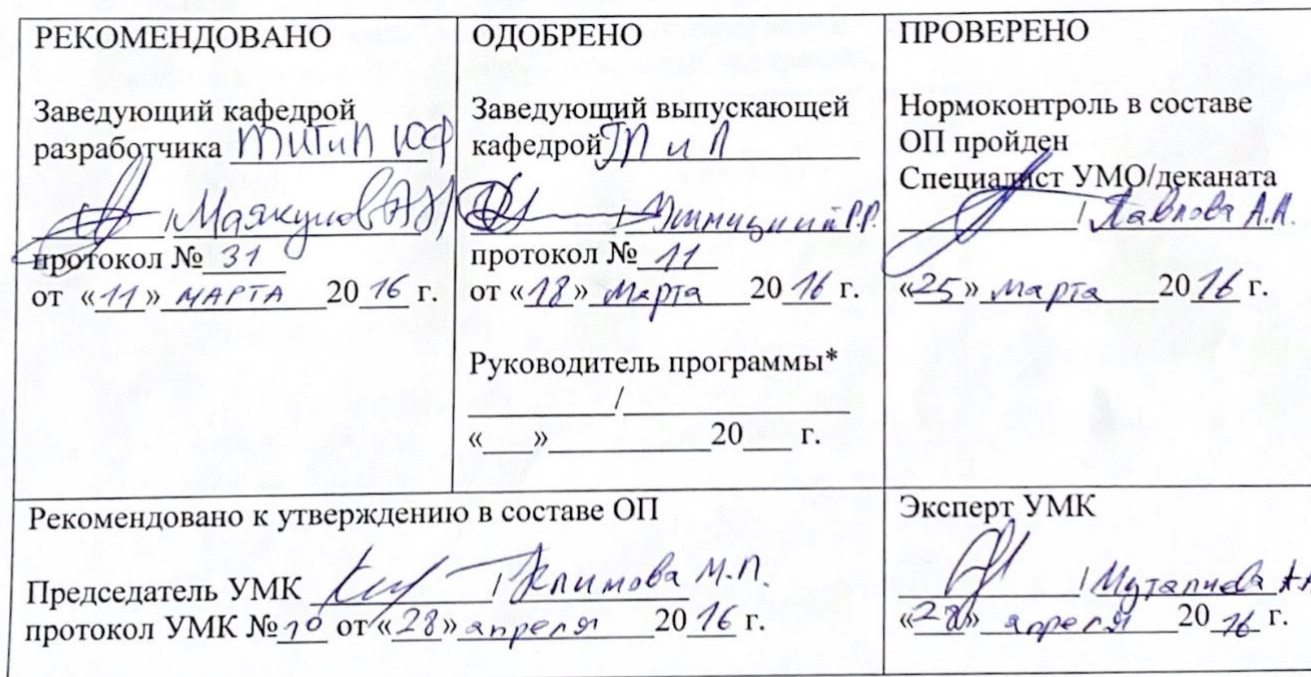 РЕКОМЕНДОВАНО
Заведующий кафедрой
разработчика ТИГиП ЮФ
/
протокол № 31
от «11» МАРТА 2016 г.
ОДОБРЕНО
Заведующий выпускающей
кафедрой ТП и П
/
протокол № 11
от «18» марта 2016 г.
Руководитель программы*
/
«   »   20   г.
ПРОВЕРЕНО
Нормоконтроль в составе
ОП пройден
Специалист УМО/деканата
/ Павлова А.А.
«25» марта 2016 г.
Рекомендовано к утверждению в составе ОП
Председатель УМК / Климова М.П.
протокол УМК № 10 от «28» апреля 2016 г.
Эксперт УМК
/
«28» апреля 2016 г.